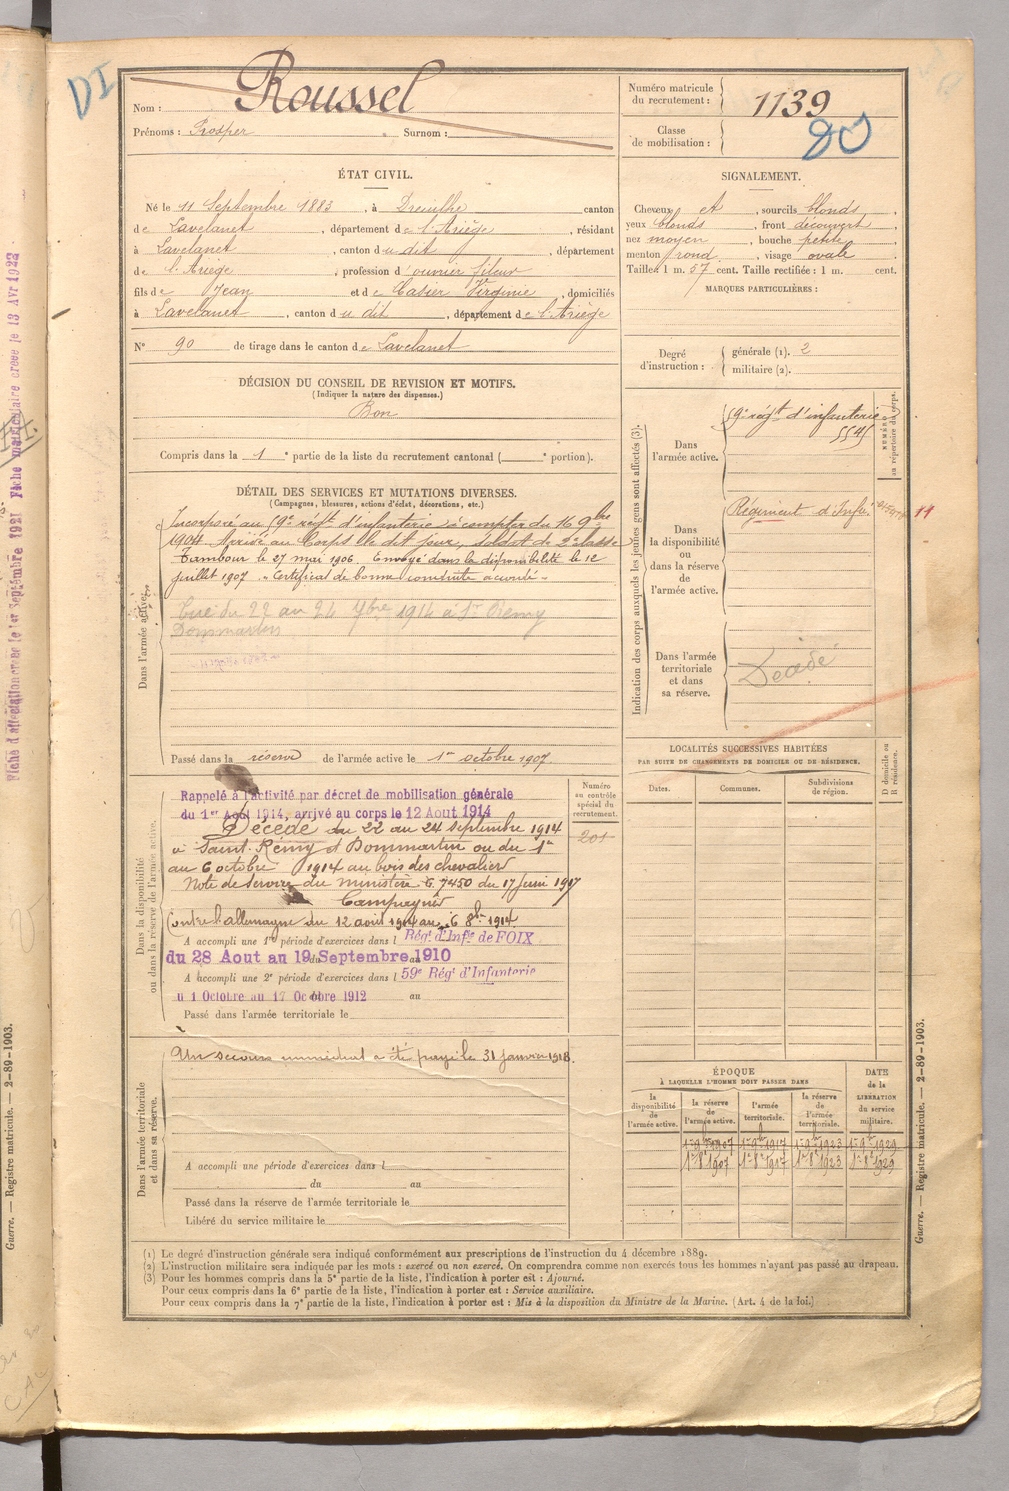 DI
Nom : Roussel
Prénoms : Prosper Surnom :
Numéro matricule du recrutement : 1139
Classe de mobilisation :
ÉTAT CIVIL.
Né le 11 Septembre 1883, à Dreuilhe canton
de Lavelanet, département de l'Ariège, résidant
à Lavelanet, canton du dit, département
de l'Ariège, profession d'ouvrier fileur
fils de Jean et de Casier Virginie, domiciliés
à Lavelanet, canton du dit, département de l'Ariège
N° 90 de tirage dans le canton de Lavelanet
SIGNALEMENT.
Cheveux et, sourcils blonds,
yeux blonds, front découvert
nez moyen, bouche petite,
menton rond, visage ovale
Taille 1 m. 57 cent. Taille rectifiée : 1 m. cent.
MARQUES PARTICULIÈRES :
Degré d'instruction : générale (1). 2
militaire (2).
DÉCISION DU CONSEIL DE REVISION ET MOTIFS.
(Indiquer la nature des dispenses.)
Bon
Compris dans la 1e partie de la liste du recrutement cantonal ( e portion).
DÉTAIL DES SERVICES ET MUTATIONS DIVERSES.
(Campagnes, blessures, actions d'éclat, décorations, etc.)
Dans l'armée active.
Incorporé au 59e régt d'infanterie à compter du 16 9bre
1904 Arrivé au Corps le dit jour, soldat de 2e classe
Tambour le 27 mai 1906 Envoyé dans la disponibilité le 12
juillet 1907 - Certificat de bonne conduite accordé -
Tué du 22 au 24 7bre 1914 à St Remy
Dommartin
Passé dans la réserve de l'armée active le 1er octobre 1907.
Dans la disponibilité ou dans la réserve de l'armée active.
Rappelé à l'activité par décret de mobilisation générale
du 1er Aout 1914, arrivé au corps le 12 Aout 1914
Décédé du 22 au 24 septembre 1914
à Saint Rémy et Dommartin ou du 1er
au 6 octobre 1914 au bois des chevalier
Note de service du ministère 7450 du 17 Juin 1917
Campagnes
Contre l'allemagne du 12 aout 1914 au 6 8bre 1914
A accompli une 1e période d'exercices dans l Régt d'Infie de FOIX
du 28 Aout au 19 Septembre 1910
A accompli une 2e période d'exercices dans l 59e Régt d'Infanterie
u 1 Octobre au 17 Octobre 1912 au
Passé dans l'armée territoriale le
Numéro au contrôle spécial du recrutement.
201
Dans l'armée territoriale et dans sa réserve.
Un secours immédiat a été payé le 31 janvier 1918.
A accompli une période d'exercices dans l
du au
Passé dans la réserve de l'armée territoriale le
Libéré du service militaire le
Indication des corps auxquels les jeunes gens sont affectés (3).
NUMÉRO au répertoire du corps.
Dans l'armée active.
59e régt d'infanterie
Dans la disponibilité ou dans la réserve de l'armée active.
Régiment d'Infie
Dans l'armée territoriale et dans sa réserve.
Décédé
LOCALITÉS SUCCESSIVES HABITÉES
PAR SUITE DE CHANGEMENTS DE DOMICILE OU DE RÉSIDENCE.
D domicile ou R résidence.
Dates. Communes. Subdivisions de région.
ÉPOQUE
À LAQUELLE L'HOMME DOIT PASSER DANS
DATE de la LIBÉRATION du service militaire.
la disponibilité de l'armée active.
la réserve de l'armée active.
l'armée territoriale.
la réserve de l'armée territoriale.
1er 9bre 1907 1er 9bre 1917 1er 9bre 1923 1er 9bre 1929
1er 8bre 1907 1er 8bre 1917 1er 8bre 1923 1er 8bre 1929
(1) Le degré d'instruction générale sera indiqué conformément aux prescriptions de l'instruction du 4 décembre 1889.
(2) L'instruction militaire sera indiquée par les mots : exercé ou non exercé. On comprendra comme non exercés tous les hommes n'ayant pas passé au drapeau.
(3) Pour les hommes compris dans la 5e partie de la liste, l'indication à porter est : Ajourné.
Pour ceux compris dans la 6e partie de la liste, l'indication à porter est : Service auxiliaire.
Pour ceux compris dans la 7e partie de la liste, l'indication à porter est : Mis à la disposition du Ministre de la Marine. (Art. 4 de la loi.)
Guerre. — Registre matricule. — 2-89-1903.
Guerre. — Registre matricule. — 2-89-1903.